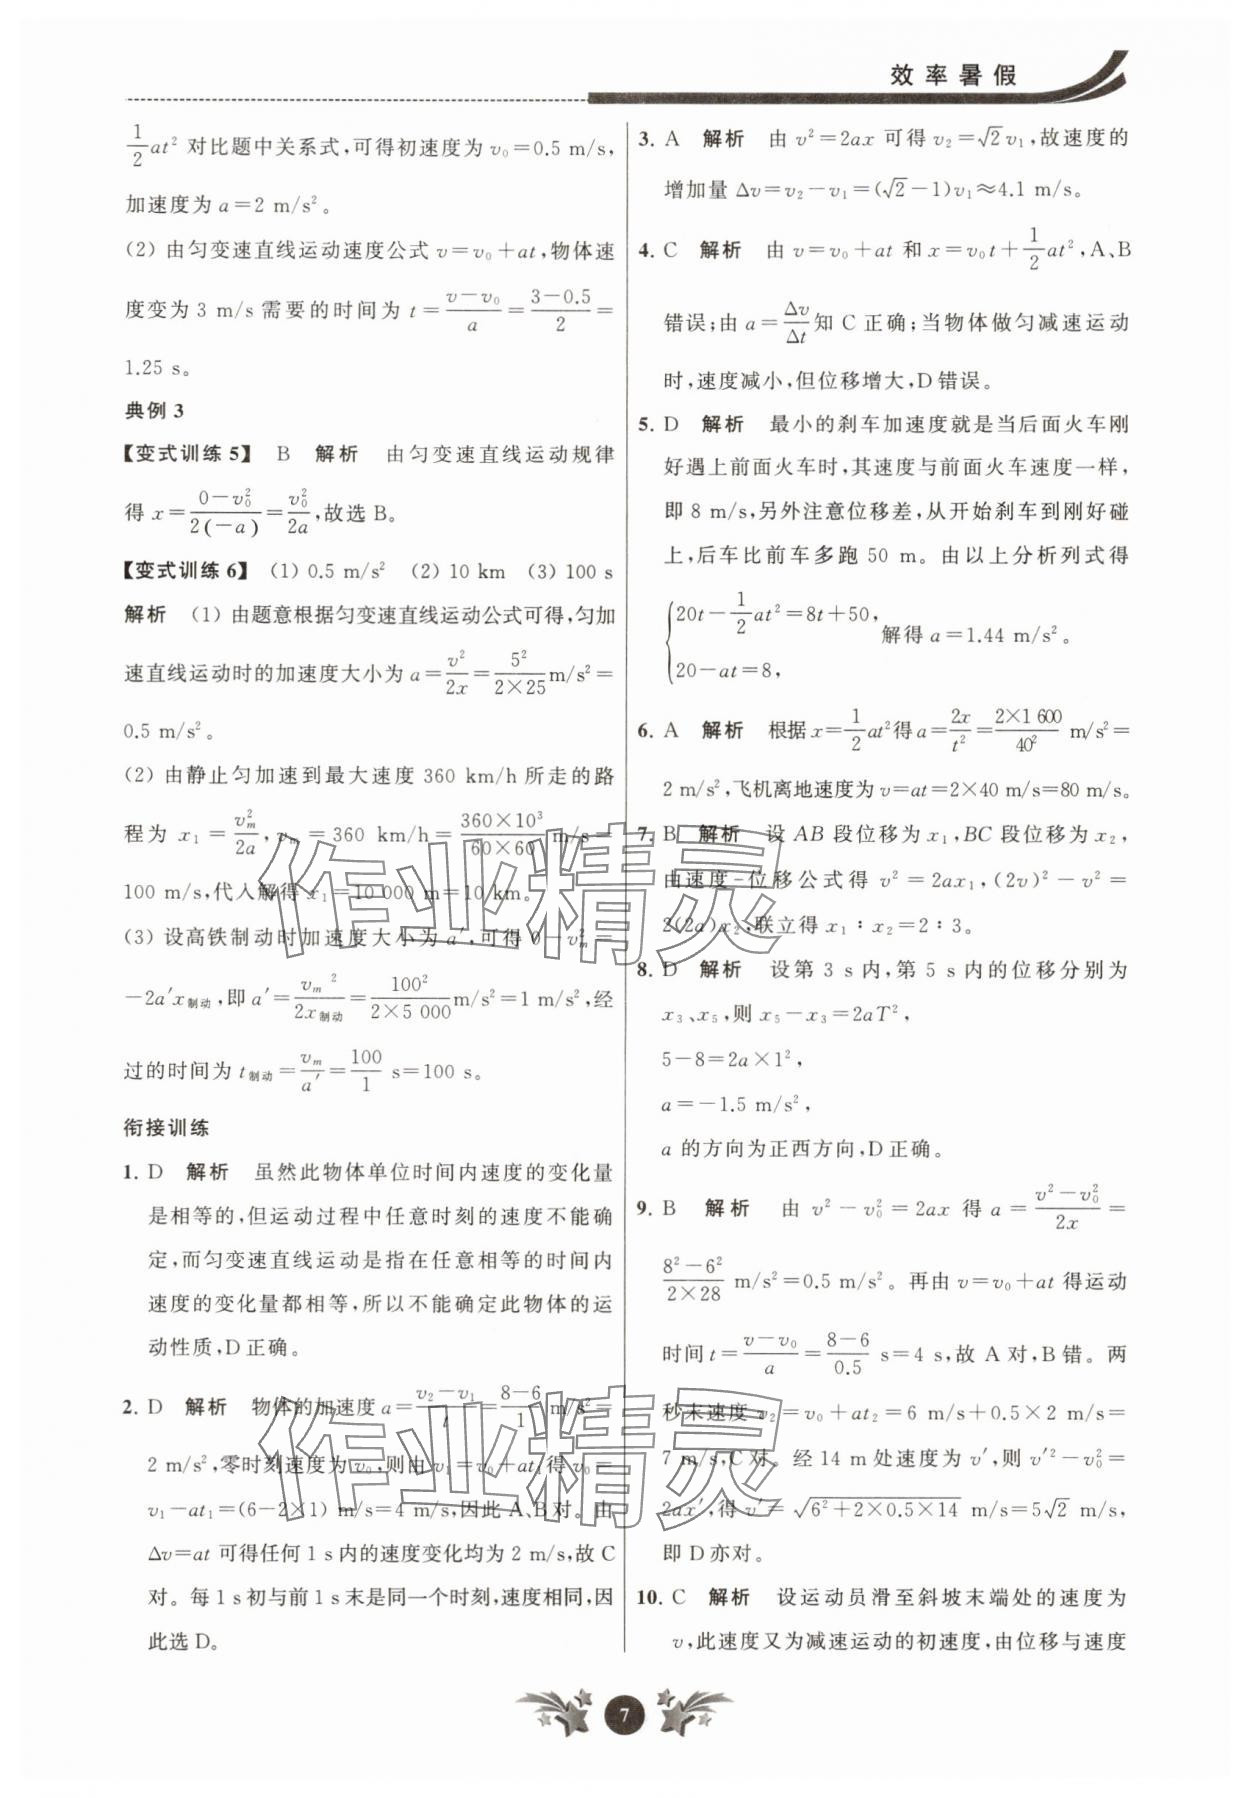 效率暑假
$\frac{1}{2}at^2$ 对比题中关系式,可得初速度为 $v_0=0.5$ m/s,
加速度为 $a=2$ m/s²。
(2) 由匀变速直线运动速度公式 $v=v_0+at$,物体速
度变为 3 m/s 需要的时间为 $t=\frac{v-v_0}{a}=\frac{3-0.5}{2}=$
1.25 s。
典例 3
【变式训练5】 B 解析 由匀变速直线运动规律
得 $x=\frac{0-v_0^2}{2(-a)}=\frac{v_0^2}{2a}$,故选 B。
【变式训练6】 (1) 0.5 m/s² (2) 10 km (3) 100 s
解析 (1) 由题意根据匀变速直线运动公式可得,匀加
速直线运动时的加速度大小为 $a=\frac{v^2}{2x}=\frac{5^2}{2×25}$m/s²=
0.5 m/s²。
(2) 由静止匀加速到最大速度 360 km/h 所走的路
程为 $x_1=\frac{v_m^2}{2a}$,$v_m=360$ km/h=$\frac{360×10^3}{60×60}$ m/s=
100 m/s,代入解得 $x_1=10 000$ m=10 km。
(3) 设高铁制动时加速度大小为 $a'$,可得 $0-v_m^2=$
$-2a'x_{制动}$,即 $a'=\frac{v_m^2}{2x_{制动}}=\frac{100^2}{2×5 000}$m/s²=1 m/s²,经
过的时间为 $t_{制动}=\frac{v_m}{a'}=\frac{100}{1}$ s=100 s。
衔接训练
1. D 解析 虽然此物体单位时间内速度的变化量
是相等的,但运动过程中任意时刻的速度不能确
定,而匀变速直线运动是指在任意相等的时间内
速度的变化量都相等,所以不能确定此物体的运
动性质,D正确。
2. D 解析 物体的加速度 $a=\frac{v_2-v_1}{t}=\frac{8-6}{1}$ m/s²=
2 m/s²,零时刻速度为 $v_0$,则由 $v_1=v_0+at_1$得 $v_0=$
$v_1-at_1=(6-2×1)$ m/s=4 m/s,因此 A、B 对。由
$Δv=at$ 可得任何 1 s 内的速度变化均为 2 m/s,故 C
对。每 1 s 初与前 1 s 末是同一个时刻,速度相同,因
此选 D。
3. A 解析 由 $v^2=2ax$ 可得 $v_2=\sqrt{2}v_1$,故速度的
增加量 $Δv=v_2-v_1=(\sqrt{2}-1)v_1≈4.1$ m/s。
4. C 解析 由 $v=v_0+at$ 和 $x=v_0t+\frac{1}{2}at^2$,A、B
错误;由 $a=\frac{Δv}{Δt}$知 C 正确;当物体做匀减速运动
时,速度减小,但位移增大,D 错误。
5. D 解析 最小的刹车加速度就是当后面火车刚
好遇上前面火车时,其速度与前面火车速度一样,
即 8 m/s,另外注意位移差,从开始刹车到刚好碰
上,后车比前车多跑 50 m。由以上分析列式得
$\begin{cases}20t-\frac{1}{2}at^2=8t+50,\\20-at=8,\end{cases}$解得 $a=1.44$ m/s²。
6. A 解析 根据 $x=\frac{1}{2}at^2$得 $a=\frac{2x}{t^2}=\frac{2×1 600}{40^2}$ m/s²=
2 m/s²,飞机离地速度为 $v=at=2×40$ m/s=80 m/s。
7. B 解析 设 AB 段位移为 $x_1$,BC 段位移为 $x_2$,
由速度-位移公式得 $v^2=2ax_1$,$(2v)^2-v^2=$
$2(2a)x_2$,联立得 $x_1:x_2=2:3$。
8. D 解析 设第 3 s 内,第 5 s 内的位移分别为
$x_3$、$x_5$,则 $x_5-x_3=2aT^2$,
$5-8=2a×1^2$,
$a=-1.5$ m/s²,
$a$ 的方向为正西方向,D 正确。
9. B 解析 由 $v^2-v_0^2=2ax$ 得 $a=\frac{v^2-v_0^2}{2x}=$
$\frac{8^2-6^2}{2×28}$ m/s²=0.5 m/s²。再由 $v=v_0+at$ 得运动
时间 $t=\frac{v-v_0}{a}=\frac{8-6}{0.5}$ s=4 s,故 A 对,B 错。两
秒末速度 $v_2=v_0+at_2=6$ m/s+0.5×2 m/s=
7 m/s,C 对。经 14 m 处速度为 $v'$,则 $v'^2-v_0^2=$
$2ax'$,得 $v'=\sqrt{6^2+2×0.5×14}$ m/s=$5\sqrt{2}$ m/s,
即 D 亦对。
10. C 解析 设运动员滑至斜坡末端处的速度为
$v$,此速度又为减速运动的初速度,由位移与速度
7
作业精灵
作业精灵